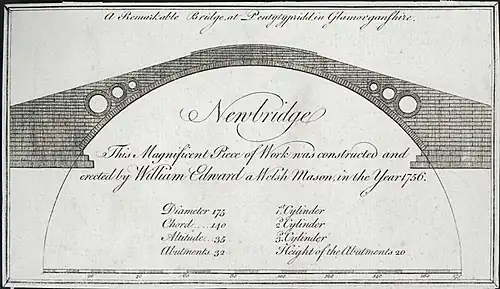 A Remarkable Bridge, at Pontytypridd, in Glamorganshire.
Newbridge
This Magnificent Piece of Work was constructed and
erected by William Edward a Welsh Mason, in the Year 1756.
Diameter 175
Chord .... 140
Altitude .. 35
Abutments 32
1st Cylinder
2d Cylinder
3d Cylinder
Height of the Abutments 20
20 40 60 80 100 120 140 160 175